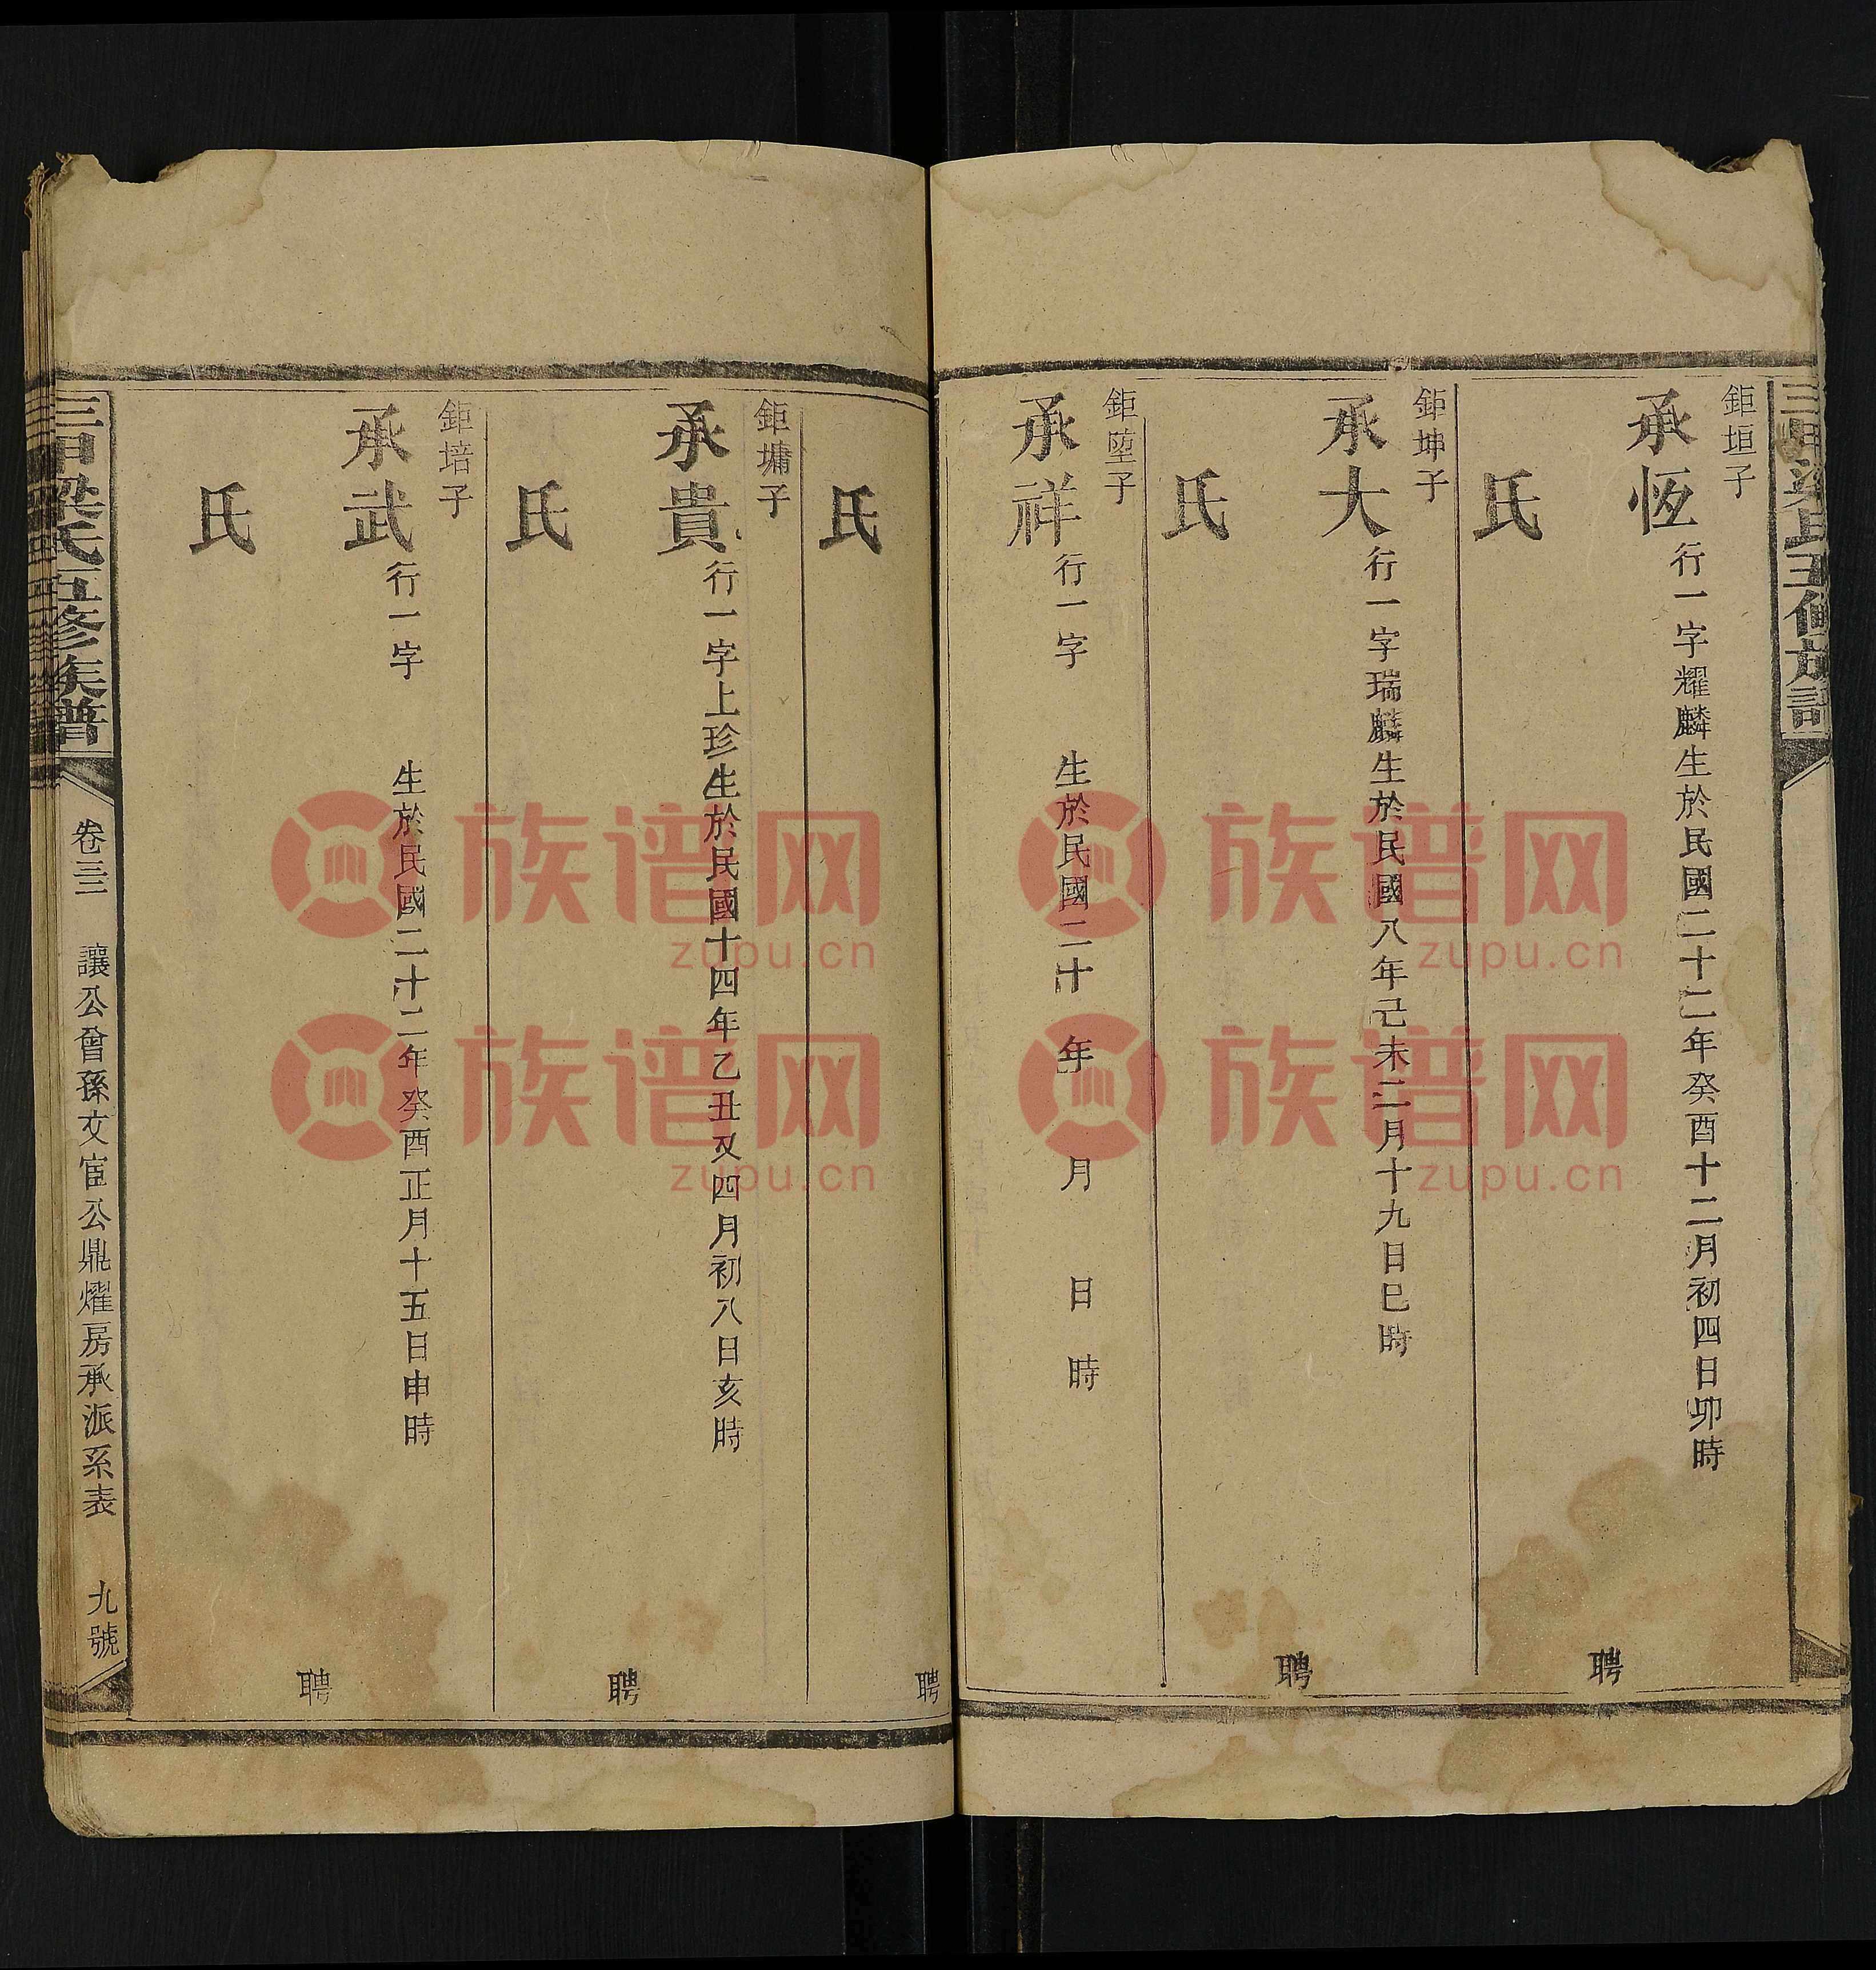 三甲梁氏五修族譜
鉅垣子
承恆行一字耀麟生於民國二十二年癸酉十二月初四日卯時
聘
氏
鉅坤子
承大行一字瑞麟生於民國八年己未二月十九日巳時
聘
氏
鉅堃子
承祥行一字 生於民國二十 年 月 日 時
聘
氏
鉅墉子
承貴行一字上珍生於民國十四年乙丑又四月初八日亥時
聘
氏
鉅培子
承武行一字 生於民國二十二年癸酉正月十五日申時
聘
氏
三甲梁氏五修族譜 卷三三 讓公曾孫文宦公鼎燿房承派系表 九號
族谱网
zupu.cn
族谱网
zupu.cn
族谱网
zupu.cn
族谱网
zupu.cn